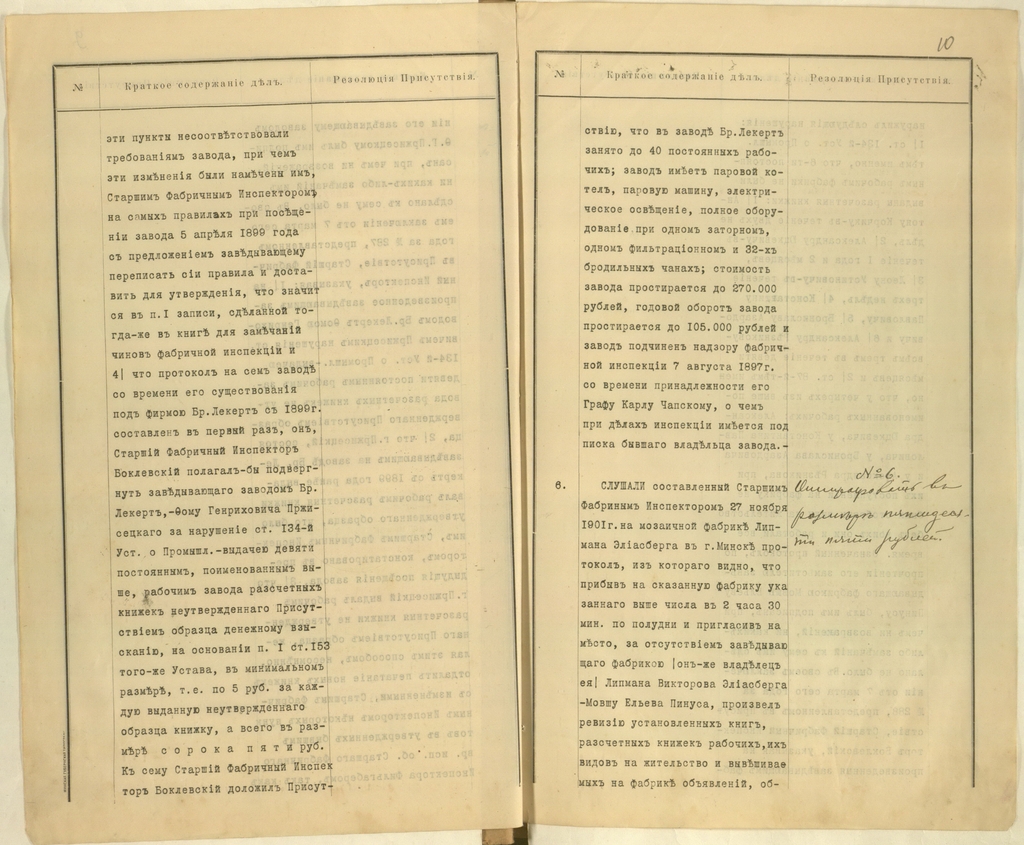 №
Краткое содержаніе дѣлъ.
Резолюція Присутствія.
эти пункты несоотвѣтствовали
требованіямъ завода, при чемъ
эти измѣненія были намѣчены имъ,
Старшимъ Фабричнымъ Инспекторомъ
на самыхъ правилахъ при посѣще-
ніи завода 5 апрѣля 1899 года
съ предложеніемъ завѣдывающему
переписать сіи правила и доста-
вить для утвержденія, что значит
ся въ п.I записи, сдѣланной то-
гда-же въ книгѣ для замѣчаній
чиновъ фабричной инспекціи и
4| что протоколъ на семъ заводѣ
со времени его существованія
подъ фирмою Бр.Лекертъ съ 1899г.
составленъ въ первый разъ, онъ,
Старшій Фабричный Инспекторъ
Боклевскій полагалъ-бы подверг-
нуть завѣдывающаго заводомъ Бр.
Лекертъ,-Ѳому Генриховича Пржи-
сецкаго за нарушеніе ст. 134-й
Уст. о Промышл.-выдачею девяти
постояннымъ, поименованнымъ вы-
ше, рабочимъ завода разсчетныхъ
книжекъ неутвержденнаго Присут-
ствіемъ образца денежному взы-
сканію, на основаніи п. I ст.153
того-же Устава, въ минимальномъ
размѣрѣ, т.е. по 5 руб. за каж-
дую выданную неутвержденнаго
образца книжку, а всего въ раз-
мѣрѣ с о р о к а п я т и руб.
Къ сему Старшій Фабричный Инспек
торъ Боклевскій доложилъ Присут-
10
№
Краткое содержаніе дѣлъ.
Резолюція Присутствія.
ствію, что въ заводѣ Бр.Лекертъ
занято до 40 постоянныхъ рабо-
чихъ; заводъ имѣетъ паровой ко-
телъ, паровую машину, электри-
ческое освѣщеніе, полное обору-
дованіе при одномъ заторномъ,
одномъ фильтраціонномъ и 32-хъ
бродильныхъ чанахъ; стоимость
завода простирается до 270.000
рублей, годовой оборотъ завода
простирается до 105.000 рублей и
заводъ подчиненъ надзору фабрич-
ной инспекціи 7 августа 1897г.
со времени принадлежности его
Графу Карлу Чапскому, о чемъ
при дѣлахъ инспекціи имѣется под
писка бывшаго владѣльца завода.-
6.
СЛУШАЛИ составленный Старшимъ
Фабринымъ Инспекторомъ 27 ноября
1901г. на мозаичной фабрикѣ Лип-
мана Эліасберга въ г.Минскѣ про-
токолъ, изъ котораго видно, что
прибывъ на сказанную фабрику ука
заннаго выше числа въ 2 часа 30
мин. по полудни и пригласивъ на
мѣсто, за отсутствіемъ завѣдываю
щаго фабрикою |онъ-же владѣлецъ
ея| Липмана Викторова Эліасберга
-Мовшу Ельева Пинуса, произвелъ
ревизію установленныхъ книгъ,
разсчетныхъ книжекъ рабочихъ,ихъ
видовъ на жительство и вывѣшивае
мыхъ на фабрикѣ объявленій, об-
№ 6.
Оштрафовать въ
размѣрѣ пятидеся-
ти пяти рублей.